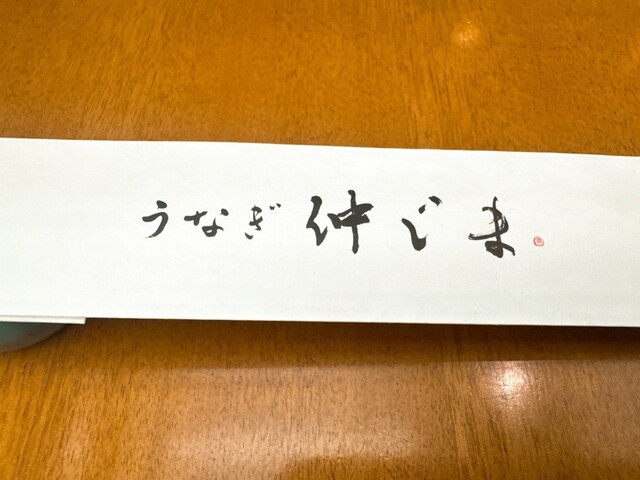 うなぎ 仲じま